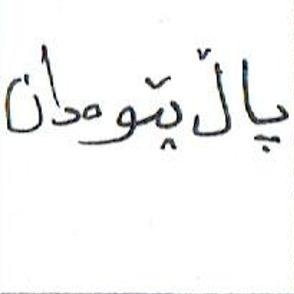 پاڵپێوەدان